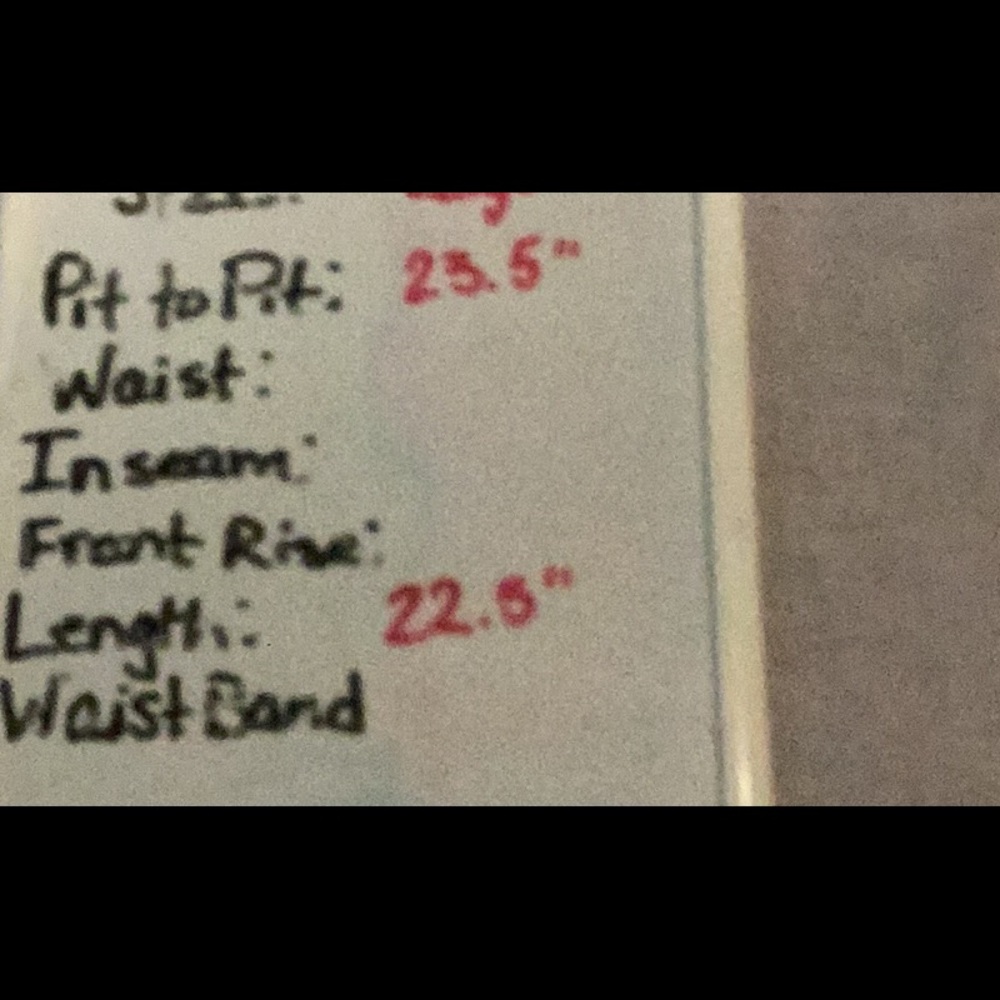 Pit to Pit: 23.5"
Waist:
Inseam:
Front Rise:
Length: 22.5"
Waist Band